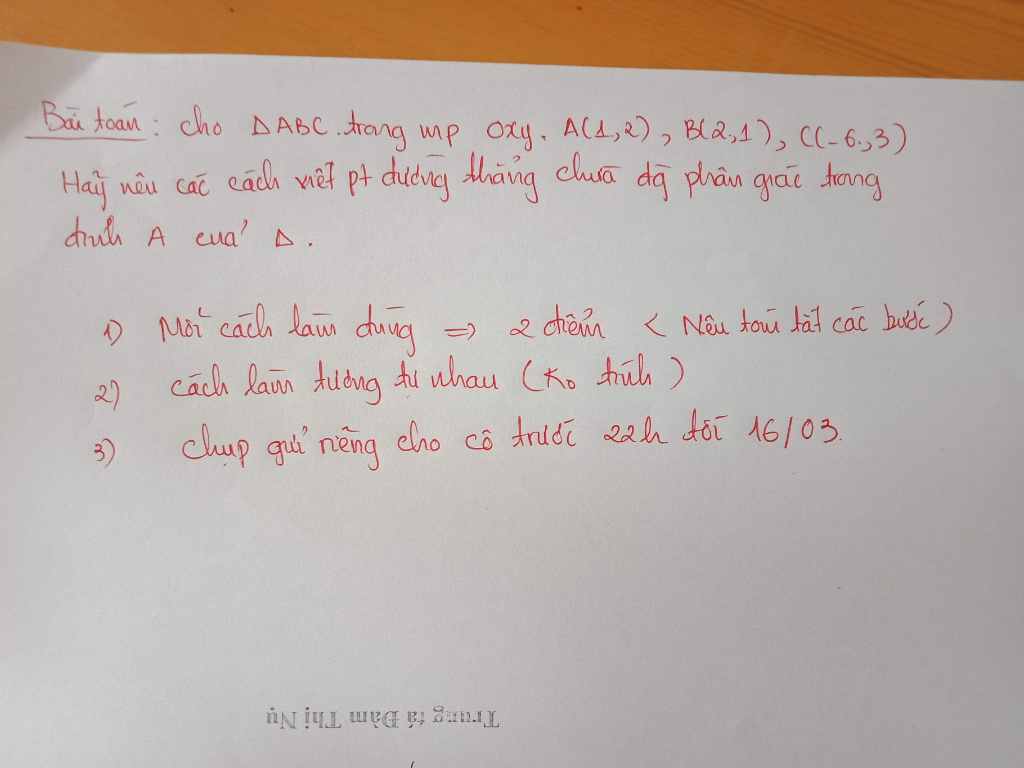 Bài toán : cho ΔABC. trong mp Oxy. A(1,2), B(2,1), C(-6,3)
Hãy nêu các cách viết pt đường thẳng chứa đg phân giác trong
đỉnh A của Δ.
1) Mỗi cách làm đúng => 2 điểm < Nêu tóm tắt các bước)
2) cách làm tương tự nhau (Ko tính)
3) Chụp gửi riêng cho cô trước 22h tối 16/03.
Trung tá Đàm Thị Nụ